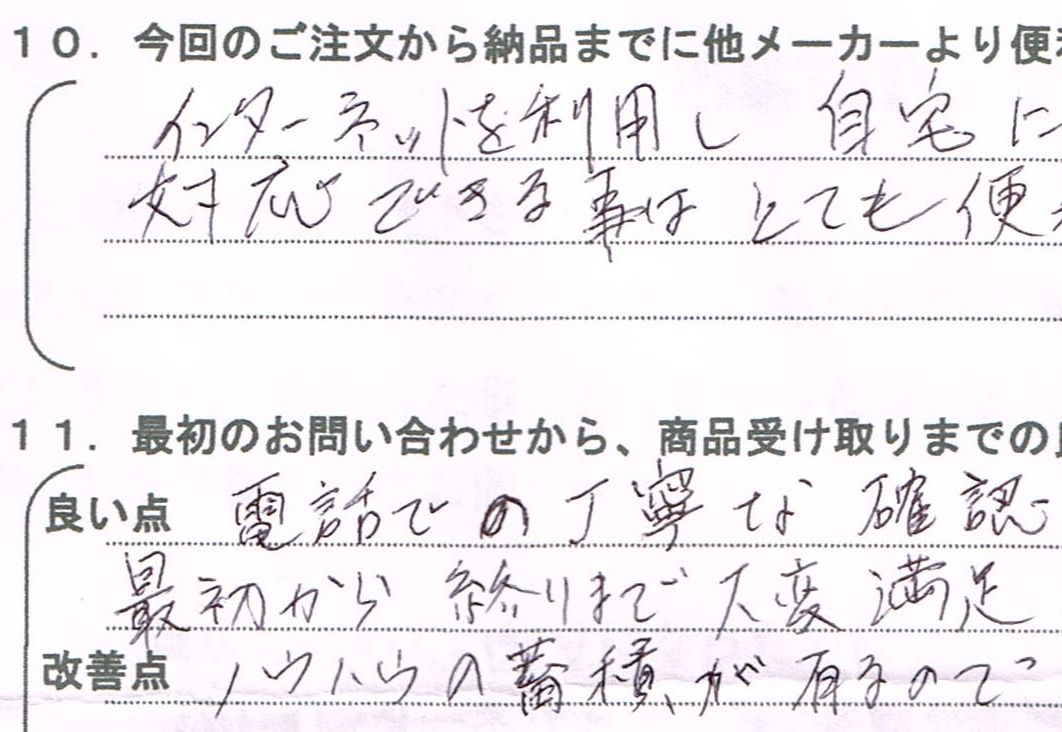 10. 今回のご注文から納品までに他メーカーより便
インターネットを利用し 自宅に
対応できる事はとても便
11. 最初のお問い合わせから、商品受け取りまでの
良い点 電話での丁寧な確認
最初から終りまで大変満足
改善点 ノウハウの蓄積が有るので